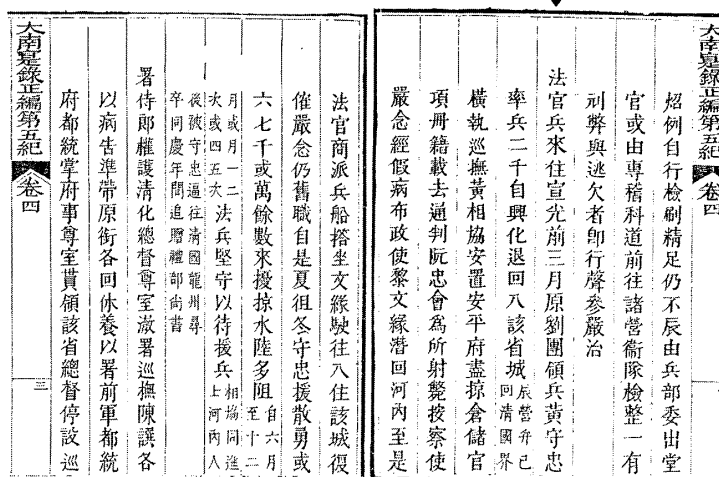 大南寔錄正編第五紀 卷四
炤例自行檢刷精足仍不辰由兵部委出堂
官或由專稽科道前往諸營衞隊檢整一有
刓弊與逃欠者卽行聲參嚴治
法官兵來住宣光前三月原劉團領兵黃守忠
率兵二千自興化退回入該省城辰營弁已回清國界
橫執巡撫黃相協安置安平府盡掠倉儲官
項冊籍載去通判阮忠會爲所射斃按察使
嚴念經假病布政使黎文緣潛回河內至是
法官商派兵船搭坐文緣駛往入住該城復
催嚴念仍舊職自是夏徂冬守忠援散勇或
六七千或萬餘數來擾掠水陸多阻自六月至十二
月或月一二次或四五次法兵堅守以待援兵相同進上河內人
後被守忠逼往清國龍州尋卒同慶年間追贈禮部尚書
署侍郎權護清化總督尊室溆署巡撫陳譔各
以病告準帶原銜各回休養以署前軍都統
府都統掌府事尊室貰領該省總督停設巡
大南寔錄正編第五紀 卷四 三